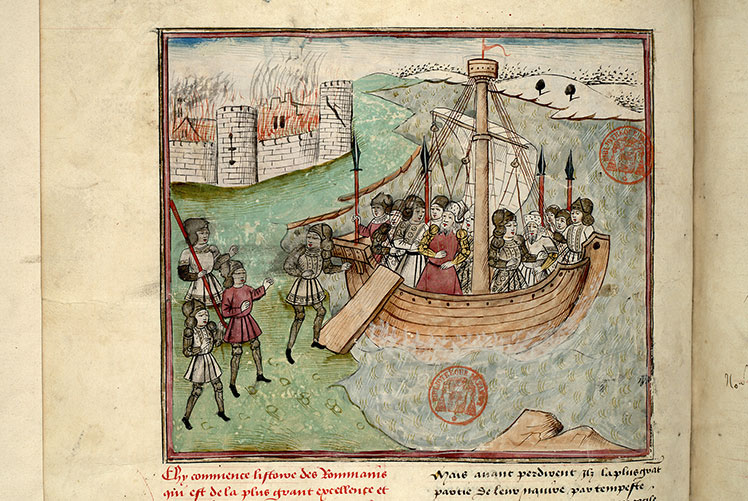 Chy commence listoire des Rommains
qui est de la plus grant excellence et
Mais auant perdirent ilz la plus grāt
partie de leur nauire par tempeste